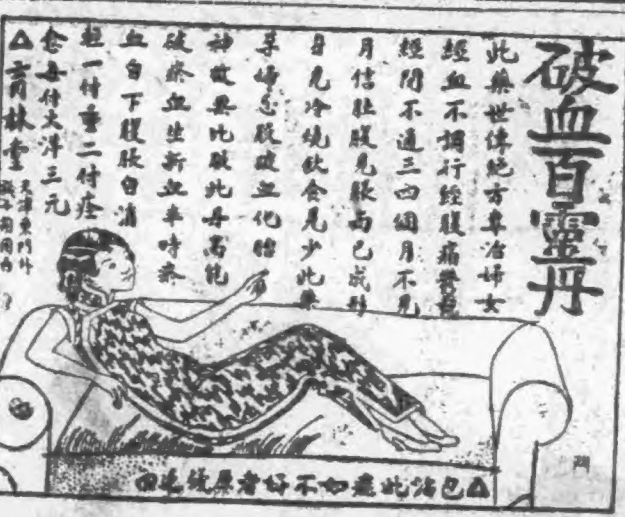 破血百靈丹
此藥世傳絕方專治婦女
經血不調行經腹痛
經閉不通三四個月不見
月信肚腹見脹而已成形
身見冷燒飲食見少此藥
孕婦忌服破血化胎
神效無比服此丹高能
破瘀血生新血車時
血自下腹脹自消
輕一付重二付痊
愈每付大洋三元
△
林
天津東門外
△包治此症如不好者原錢退回